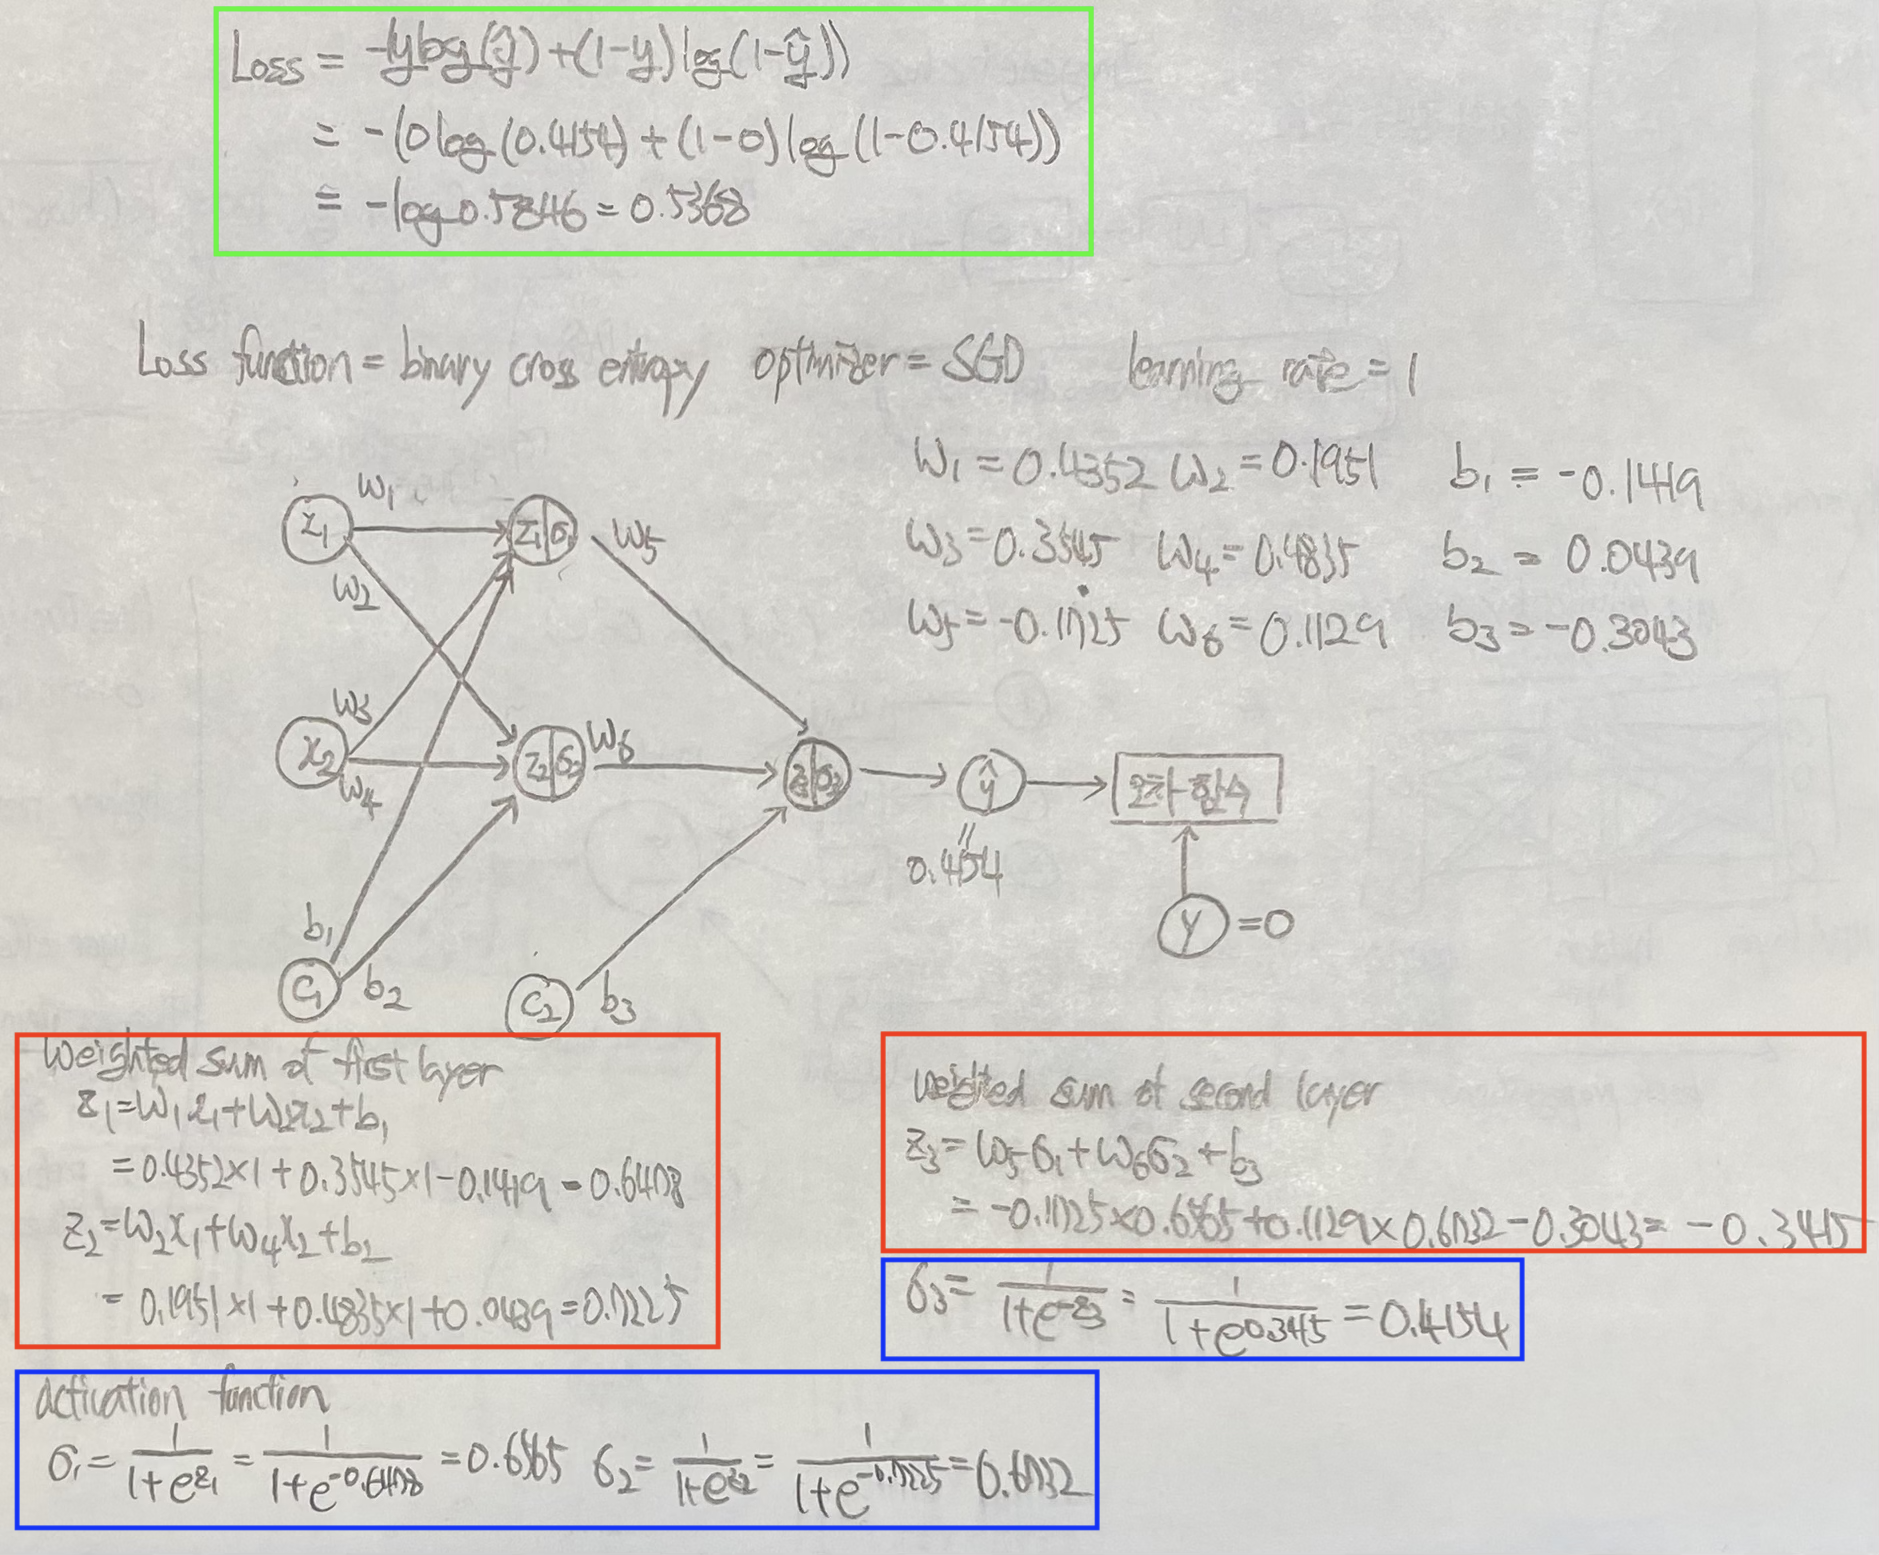 Loss = -(ylog(ŷ)+(1-y)log(1-ŷ))
= -(0log(0.4154)+(1-0)log(1-0.4154))
= -log0.5846=0.5368
Loss function = binary cross entropy optimizer = SGD learning rate = 1
W1 = 0.4352 W2 = 0.1951 b1 = -0.1419
W3 = 0.3545 W4 = 0.4835 b2 = 0.0439
W5 = -0.1725 W6 = 0.1129 b3 = -0.3043
x1 W1 z1 σ1 W5
W2
W3
x2 W4 z2 σ2 W6 z3 σ3 ŷ 오차 함수
=
0.4154
y =0
b1
C1 b2 C2 b3
Weighted sum of first layer
z1=W1x1+W2x2+b1
=0.4352×1+0.3545×1-0.1419=0.6478
z2=W2x1+W4x2+b2
=0.1951×1+0.4835×1+0.0439=0.7225
weighted sum of second layer
z3=W5σ1+W6σ2+b3
=-0.1725×0.6565+0.1129×0.6732-0.3043=-0.3415
σ3= 1/(1+e^-z3) = 1/(1+e^0.3415) =0.4154
activation function
σ1= 1/(1+e^z1) = 1/(1+e^-0.6478) =0.6565 σ2= 1/(1+e^z2) = 1/(1+e^-0.7225) =0.6732